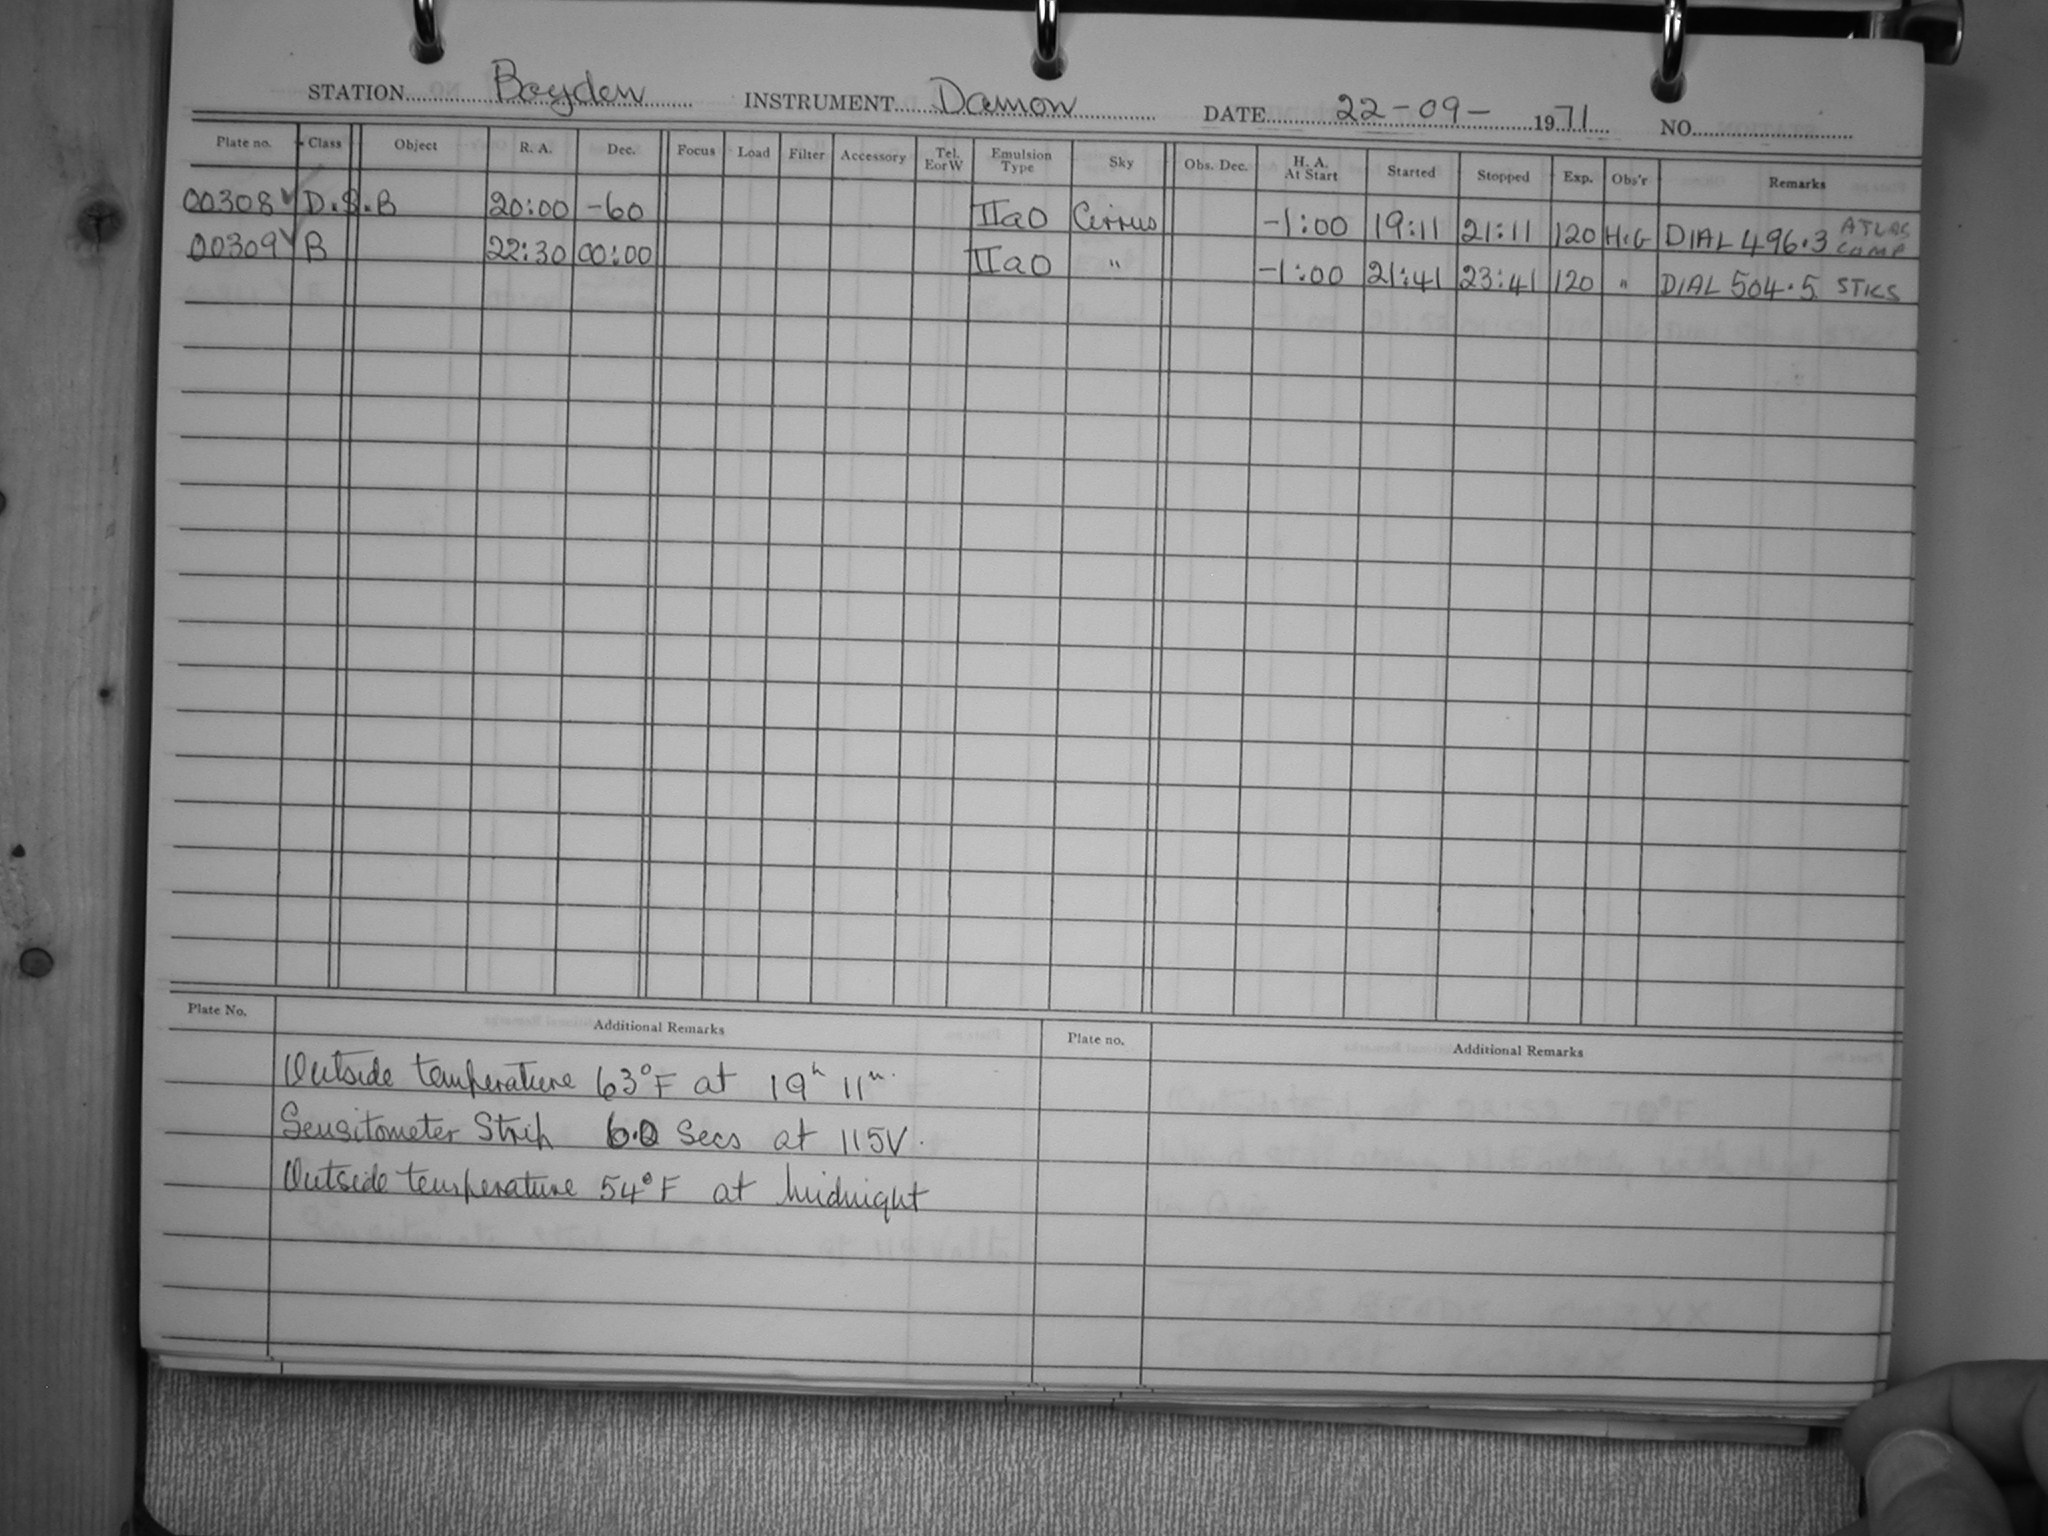 STATION Boyden INSTRUMENT Damon DATE 22-09- 1971 NO.
Plate no. Class Object R. A. Dec. Focus Load Filter Accessory Tel. E or W Emulsion Type Sky Obs. Dec. H. A. At Start Started Stopped Exp. Obs'r Remarks
00308 D.S.B 20:00 -60 IIaO Cirrus -1:00 19:11 21:11 120 H.G DIAL 496.3 ATLAS COMP
00309 B 22:30 00:00 IIaO " -1:00 21:41 23:41 120 " DIAL 504.5 STKS
Plate No. Additional Remarks Plate no. Additional Remarks
Outside temperature 63°F at 19h 11m.
Sensitometer Strip 6.0 Secs at 115V.
Outside temperature 54°F at midnight